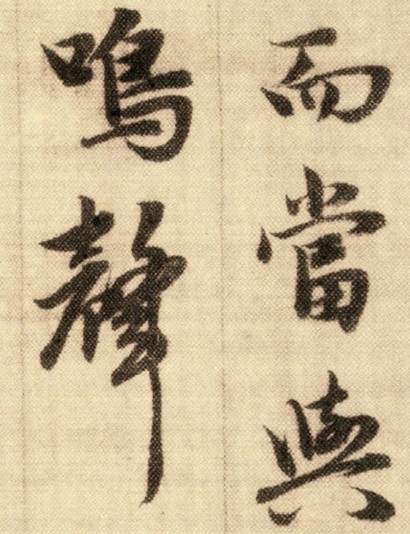 而當與
鳴聲